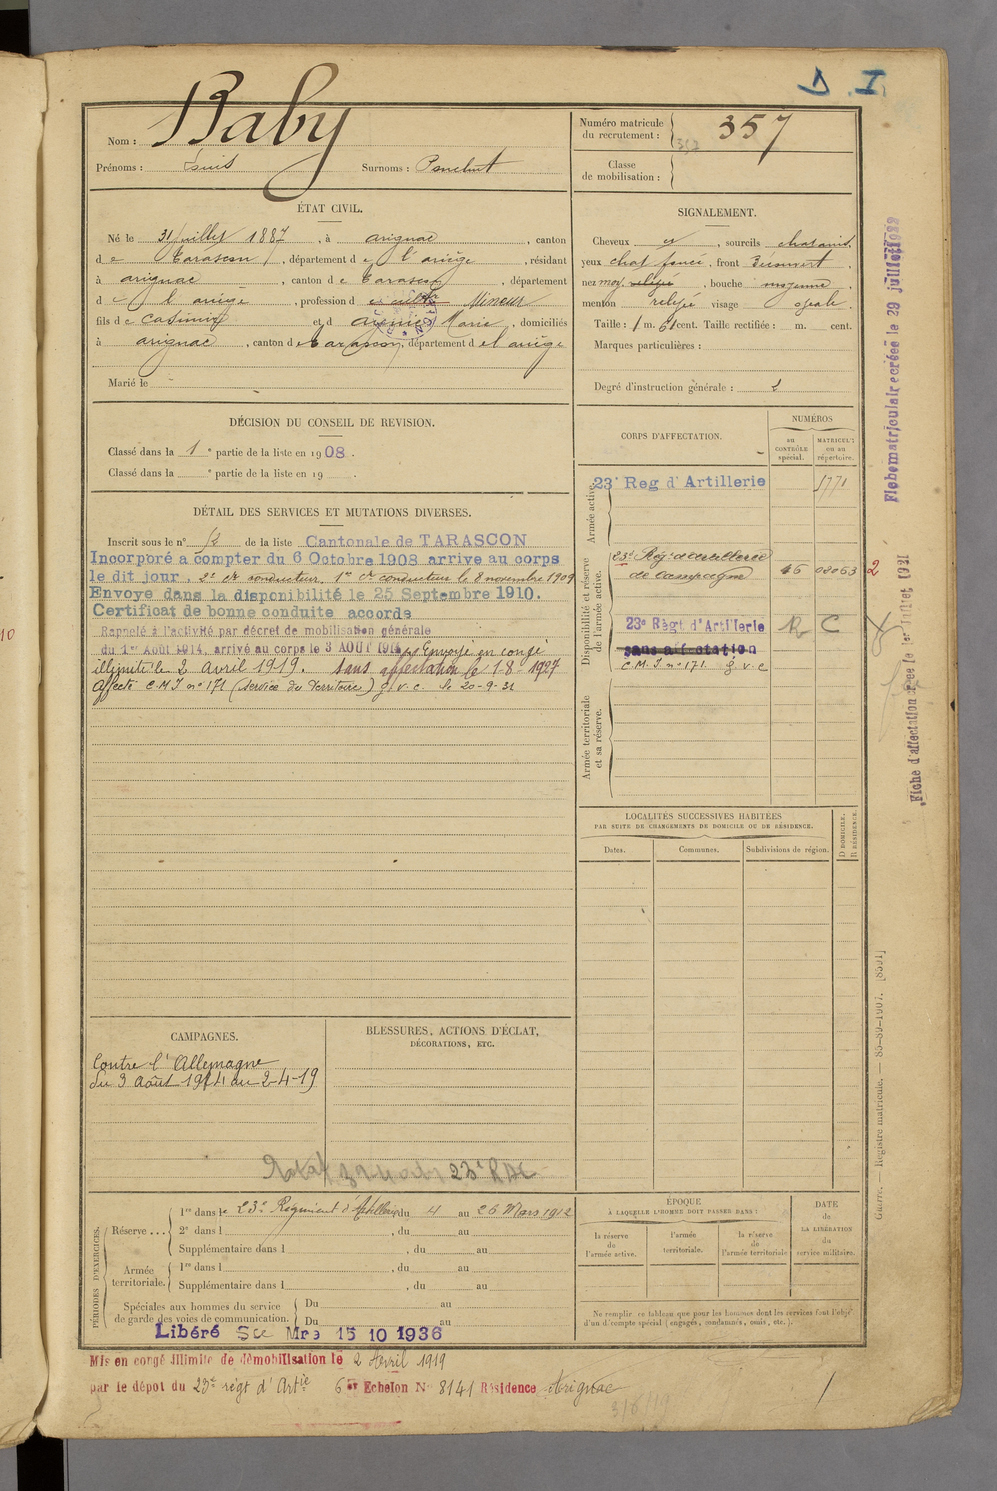 D. I.
Nom : Baby
Prénoms : Louis Surnoms : Ponchut
Numéro matricule du recrutement : 357
Classe de mobilisation :
ÉTAT CIVIL.
Né le 31 juillet 1887, à arignac, canton
de Tarascon, département de l'ariège, résidant
à arignac, canton de Tarascon, département
d e l'ariège, profession d Mineur
fils de Casimir et d Marie, domiciliés
à arignac, canton de Tarascon, département d el'ariège
Marié le
SIGNALEMENT.
Cheveux et, sourcils chatains,
yeux chat foncé, front Découvert,
nez moy. relevé, bouche moyenne,
menton relevé visage ovale.
Taille : 1 m. 61 cent. Taille rectifiée : m. cent.
Marques particulières :
Degré d'instruction générale : 2
DÉCISION DU CONSEIL DE REVISION.
Classé dans la 1e partie de la liste en 1908.
Classé dans la e partie de la liste en 19 .
CORPS D'AFFECTATION.
NUMÉROS
au CONTRÔLE spécial.
MATRICULE ou au répertoire.
Armée active.
23e Reg d'Artillerie 1771
Disponibilité et réserve de l'armée active.
23e Rég. d'artillerie
de campagne 46 02063 2
23e Règt d'Artillerie R C
sans affectation
C.M.I. n° 171. g.v.c
Armée territoriale et sa réserve.
DÉTAIL DES SERVICES ET MUTATIONS DIVERSES.
Inscrit sous le n° 12 de la liste Cantonale de TARASCON
Incorporé a compter du 6 Octobre 1908 arrive au corps
le dit jour. 2e cr conducteur. 1er cr conducteur le 8 novembre 1909
Envoye dans la disponibilité le 25 Septembre 1910.
Certificat de bonne conduite accorde
Rappelé à l'activité par décret de mobilisation générale
du 1er Août 1914, arrivé au corps le 3 AOUT 1914 Envoyé en congé
illimité le 2 Avril 1919. sans affectation le 1-8-1927
Affecté C.M.I n° 171 (Service du Territoire) g.v.c. le 20-9-31
LOCALITÉS SUCCESSIVES HABITÉES
PAR SUITE DE CHANGEMENTS DE DOMICILE OU DE RÉSIDENCE.
Dates. Communes. Subdivisions de région. D. DOMICILE. R. RÉSIDENCE.
CAMPAGNES.
Contre l'Allemagne
du 3 Août 1914 au 2-4-19
BLESSURES, ACTIONS D'ÉCLAT,
DÉCORATIONS, ETC.
23e RAC
PÉRIODES D'EXERCICES.
Réserve...
1re dans le 23e Régiment d'Artillerie du 4 au 26 Mars 1912
2e dans l , du au
Supplémentaire dans l , du au
Armée territoriale.
1re dans l , du au
Supplémentaire dans l , du au
Spéciales aux hommes du service
de garde des voies de communication.
Du au
Du au
Libéré Sce Mre 15 10 1936
ÉPOQUE
À LAQUELLE L'HOMME DOIT PASSER DANS :
la réserve de l'armée active.
l'armée territoriale.
la réserve de l'armée territoriale
DATE de LA LIBÉRATION du service militaire.
Ne remplir ce tableau que pour les hommes dont les services font l'objet
d'un décompte spécial (engagés, condamnés, omis, etc.).
Mis en congé illimité de démobilisation le 2 Avril 1919
par le dépot du 23e régt d'Artie 6e Echelon N° 8141 Résidence Arignac
3/6/19
Fiche matriculaire créée le 29 juillet 1922
Fiche d'affectation créée le 1er Juillet 1931
Guerre. — Registre matricule. — 85-89-1907. [8591]